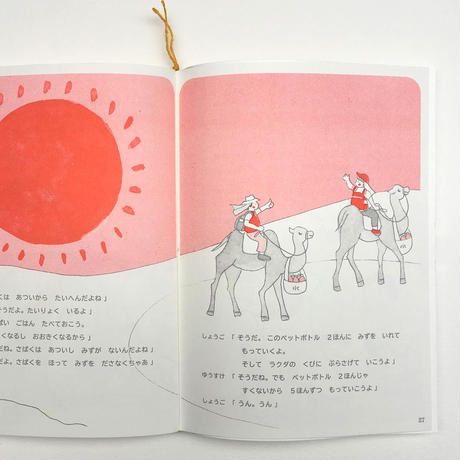 くは　あついから　たいへんだよね」
そうだよ。たいりょく　いるよ」
ぱい　ごはん　たべておこう。
くなるし　おおきくなるから」
だね。さばくは　あついし　みずが　ないんだよね」
だよ。さばくを　ほって　みずを　ださなくちゃあ」
水
水
しょうご「そうだ。このペットボトル　2ほんに　みずを　いれて
もっていくよ。
そして　ラクダの　くびに　ぶらさげて　いこうよ」
ゆうすけ「そうだね。でも　ペットボトル　2ほんじゃ
すくないから　5ほんずつ　もっていこうよ」
しょうご「うん。うん」